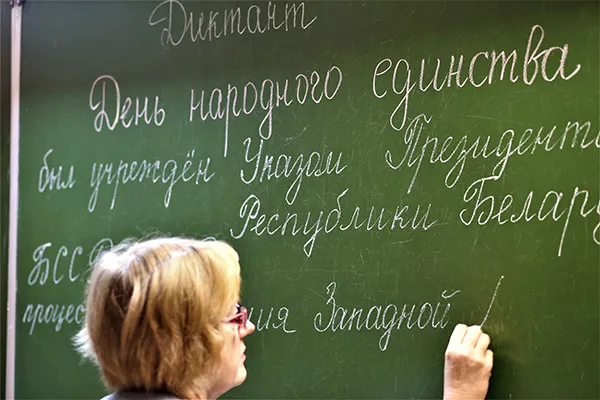 Диктант
День народного единства
был учреждён Указом
Президента
Республики Белару
БССР
процес ия Западной